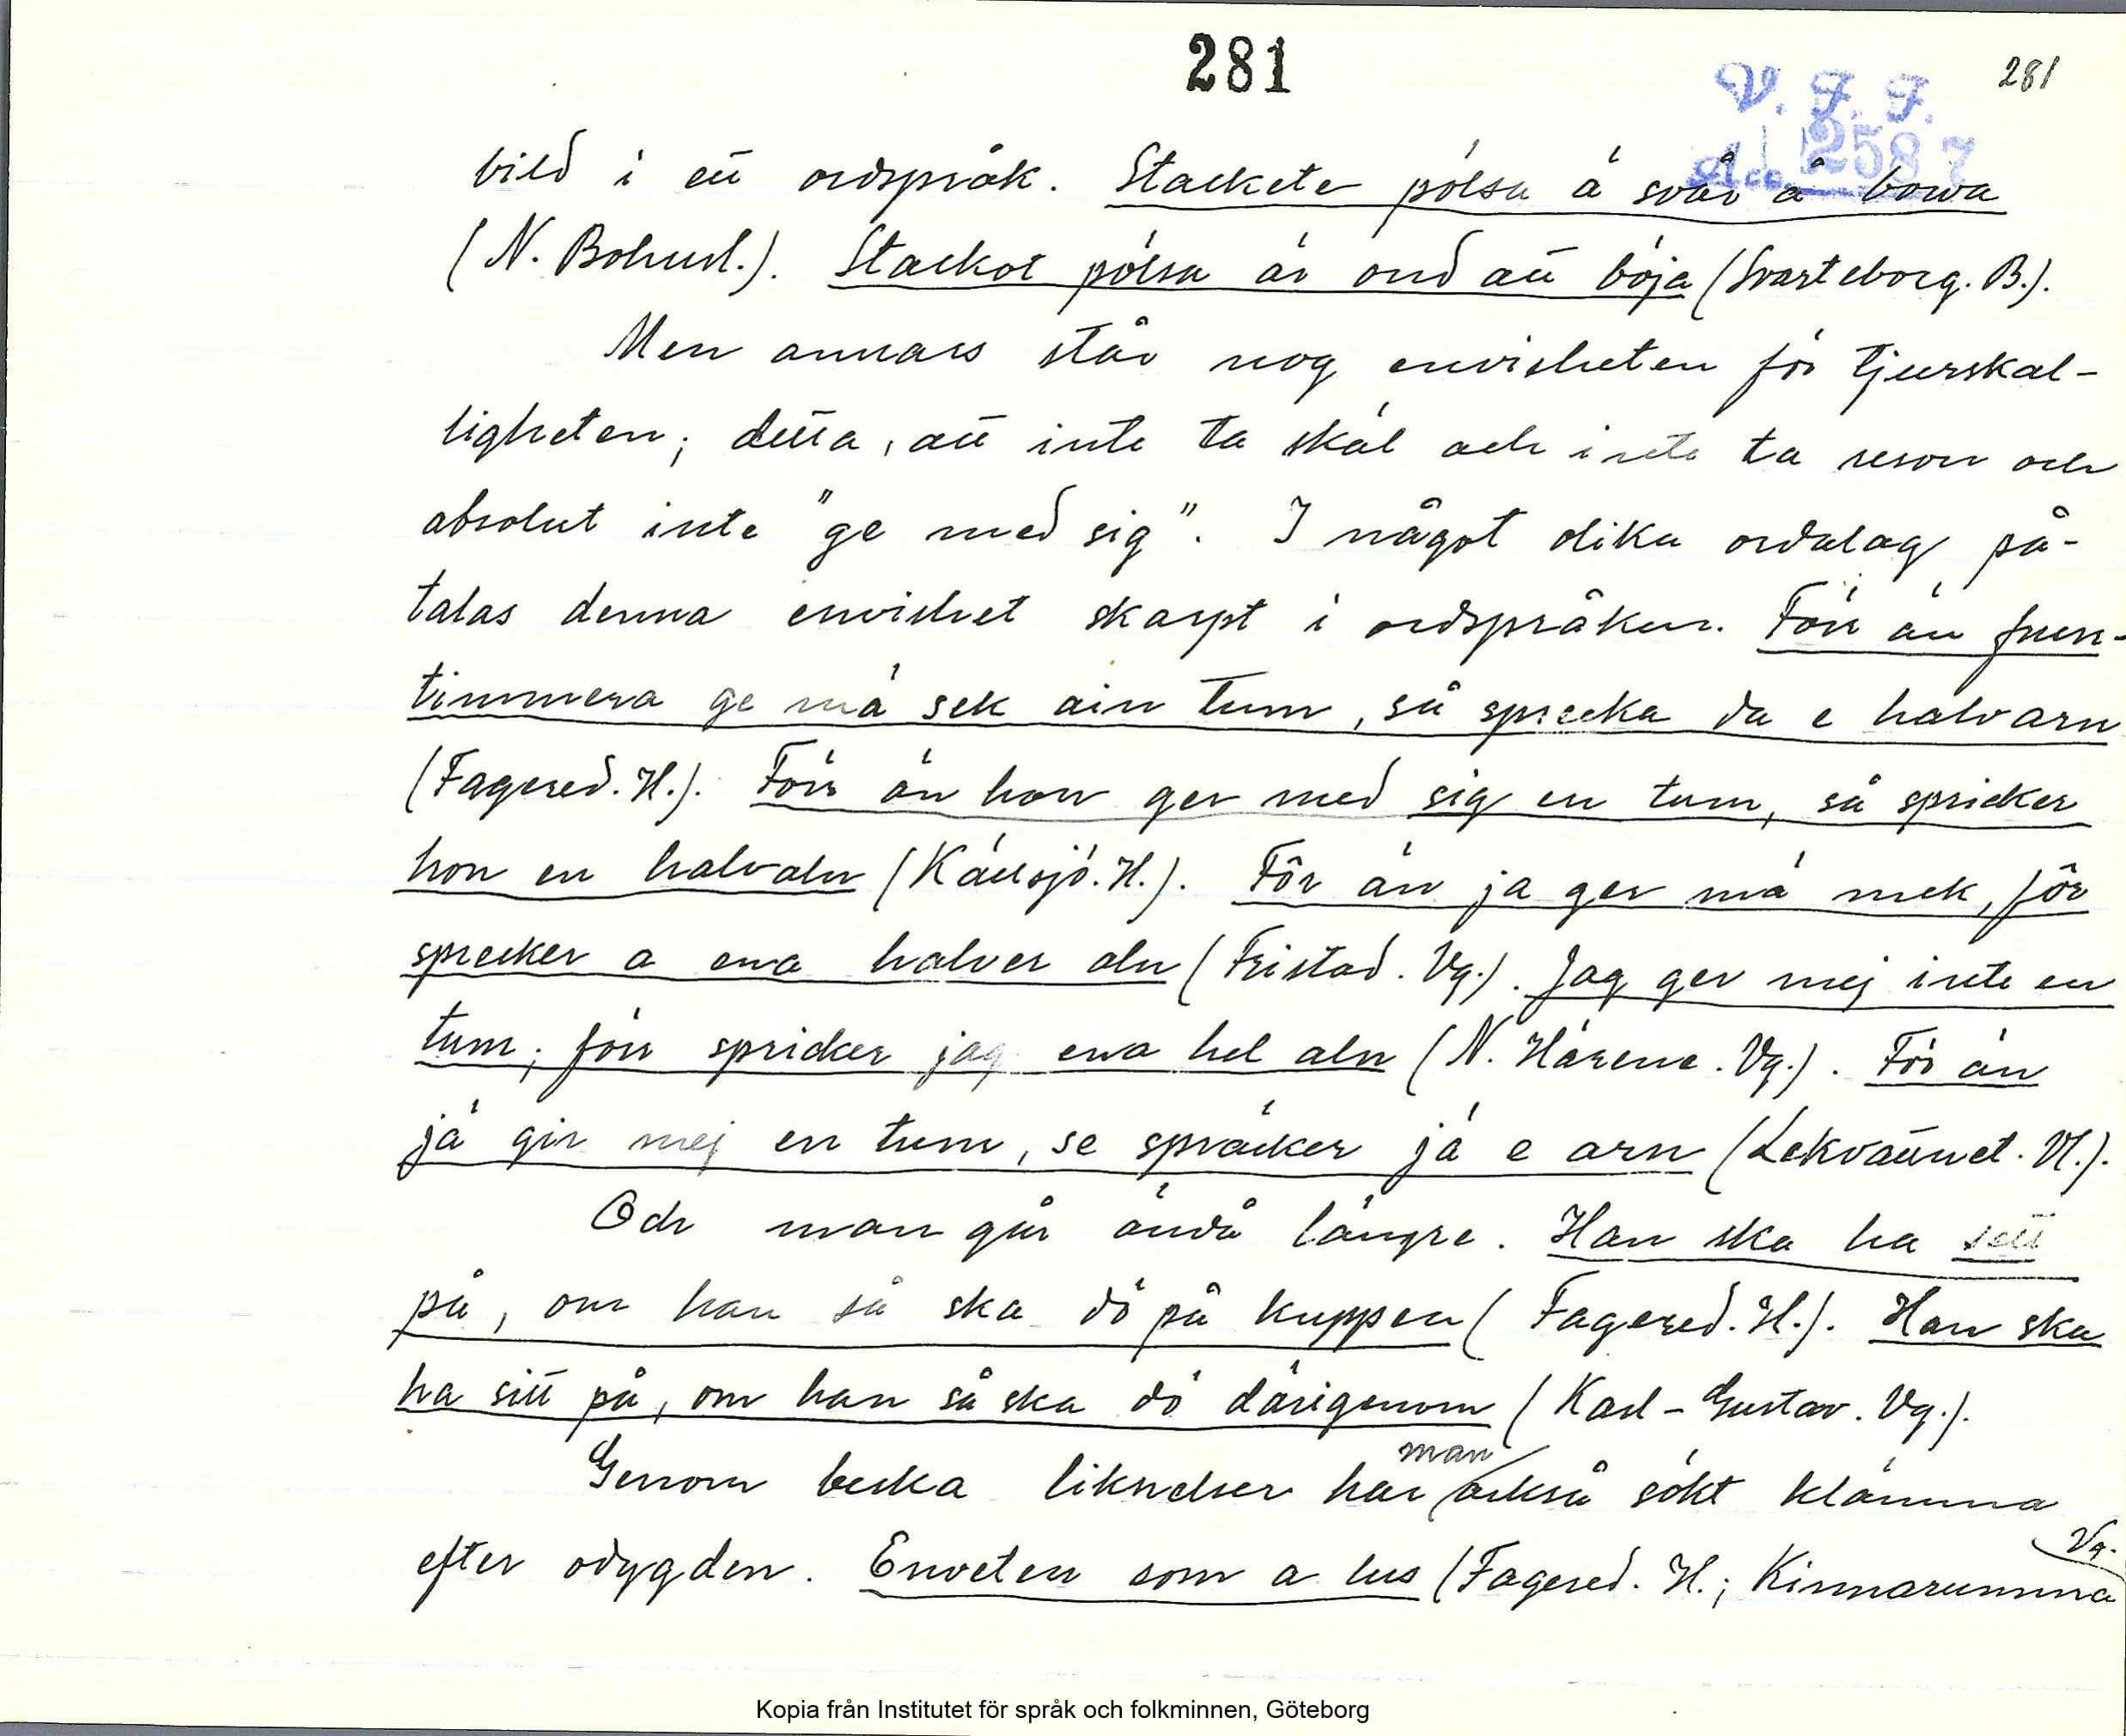 281
281
V. F. F.
Acc. 2587
bild i ett ordspråk. Stackete pölsa ä svår å bowa
(N. Bohusl.). Stackot pölsa är ond att böja (Svarteborg. B.).
Men annars står nog envisheten för tjurskal-
ligheten; detta, att inte ta skäl och inte ta reson och
absolut inte "ge med sig". I något olika ordalag på-
talas denna envishet skarpt i ordspråken. Förr än fruen-
timmera ge mä sek ain tum, så sprecka da e halvarn
(Fagered. H.). Förr än hon ger med sig en tum, så spricker
hon en halvaln (Källsjö. H.). För än ja ger mä mek, för
sprecker a ena halver aln (Fristad. Vg.). Jag ger mej inte en
tum; förr spricker jag ena hel aln (N. Härene. Vg.). För än
jä gir mej en tum, se spräcker jä e arn (Lekvattnet. Vl.).
Och man går ändå längre. Han ska ha sett
på, om han så ska dö på kuppen (Fagered. H.). Han ska
ha sitt på, om han så ska dö därigenom (Karl-Gustav. Vg.).
Genom beska liknelser har man också sökt klämma
efter odygden. Enveten som a lus (Fagered. H.; Kinnarumma Vg.
Kopia från Institutet för språk och folkminnen, Göteborg